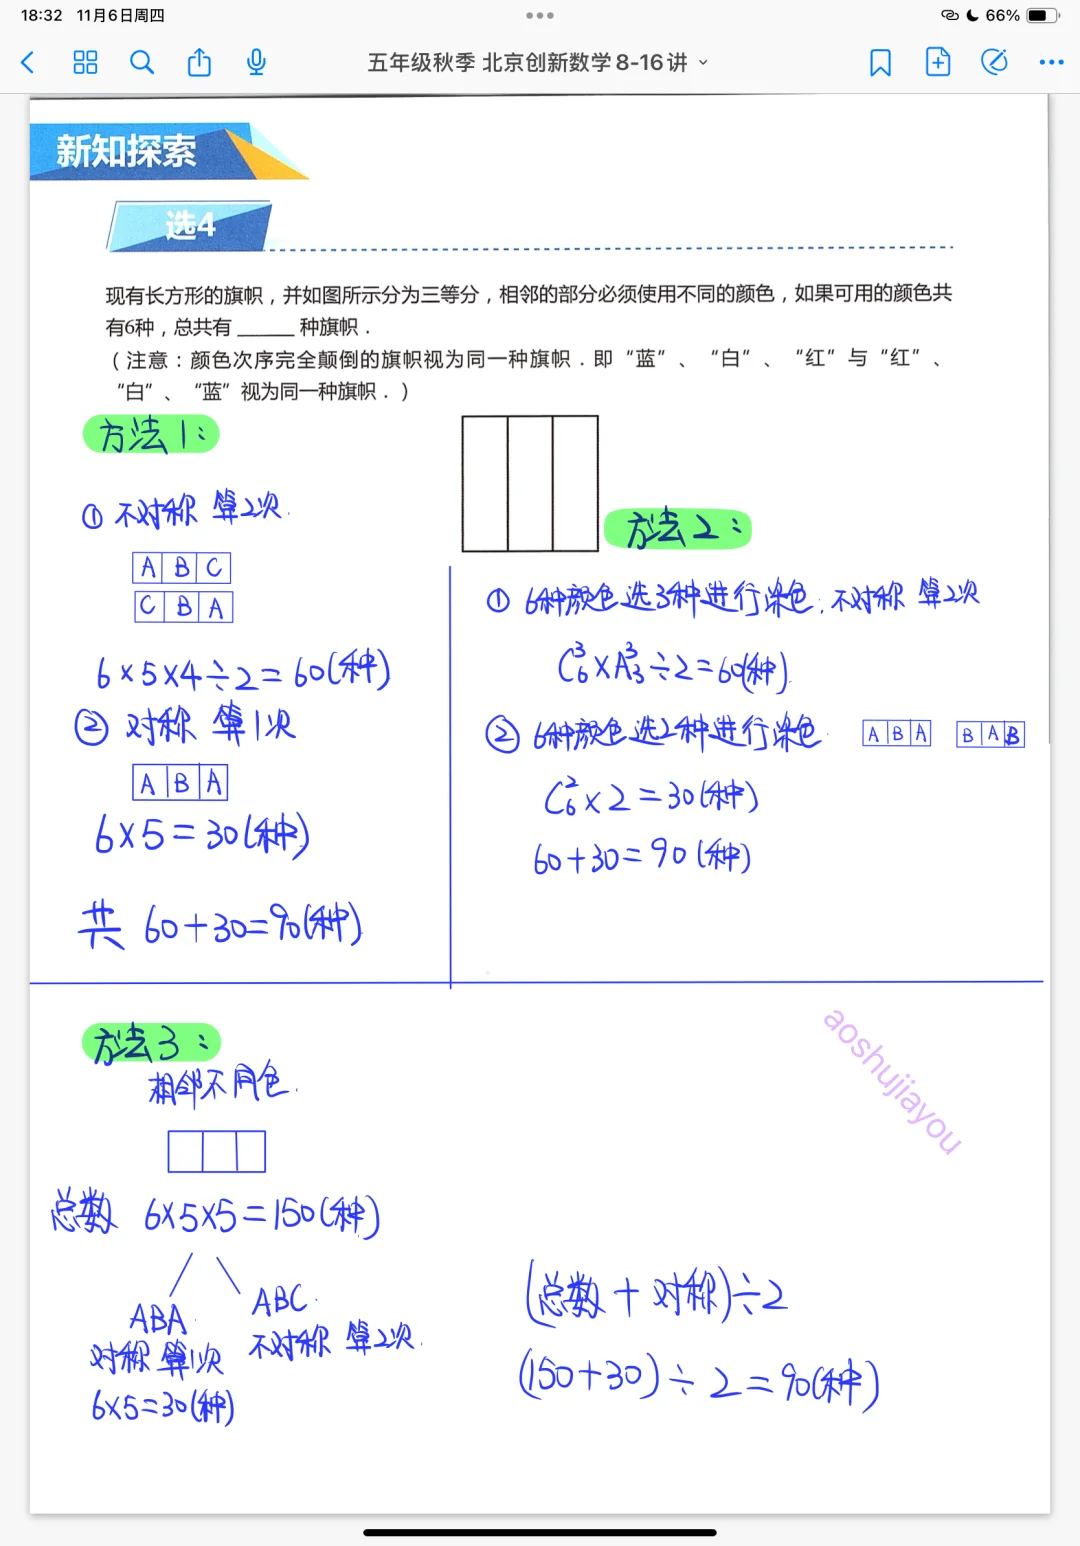 18:32 11月6日周四
66%
五年级秋季 北京创新数学8-16讲
新知探索
选4
现有长方形的旗帜，并如图所示分为三等分，相邻的部分必须使用不同的颜色，如果可用的颜色共
有6种，总共有 ______ 种旗帜．
（注意：颜色次序完全颠倒的旗帜视为同一种旗帜．即“蓝”、“白”、“红”与“红”、
“白”、“蓝”视为同一种旗帜．）
方法1：
① 不对称 算2次.
A B C
C B A
6×5×4÷2=60(种)
② 对称 算1次
A B A
6×5=30(种)
共 60+30=90(种)
方法2：
① 6种颜色选3种进行染色，不对称 算2次
C₆³×A₃³÷2=60(种).
② 6种颜色选2种进行染色.
A B A
B A B
C₆²×2=30(种)
60+30=90(种)
方法3：
相邻不同色.
总数 6×5×5=150(种)
ABA.
对称 算1次
6×5=30(种)
ABC.
不对称 算2次.
(总数+对称)÷2
(150+30)÷2=90(种)
aoshujiayou